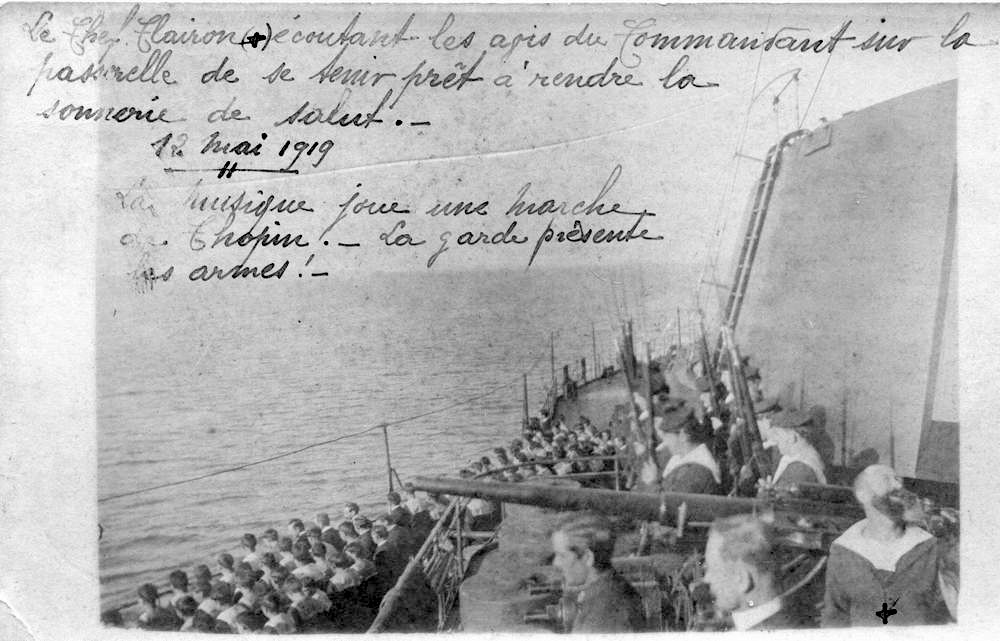 Le Chef Clairon (+) écoutant les avis du Commandant sur la
passerelle de se tenir prêt à rendre la
sonnerie de salut.-
12 mai 1919
La musique joue une marche
de Chopin.- La garde présente
les armes!-
+